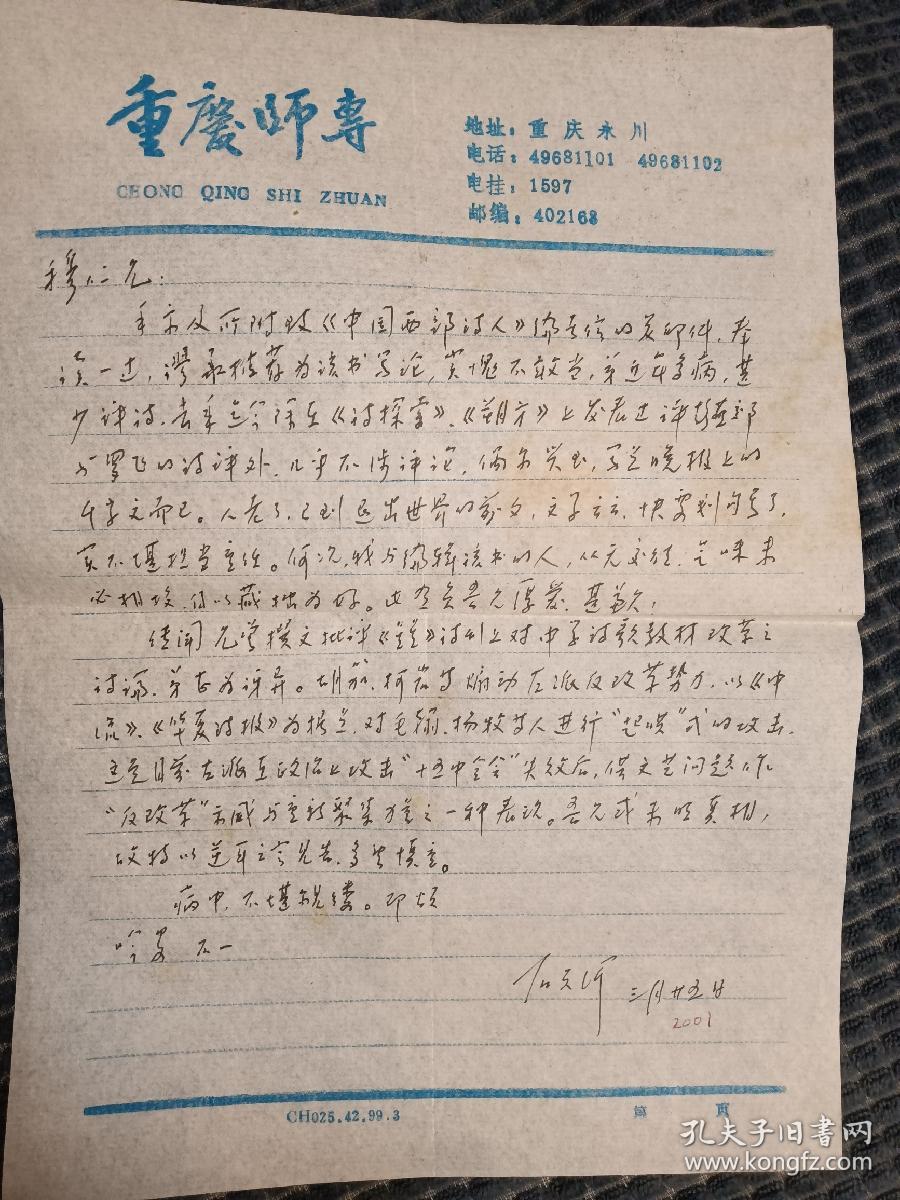 重慶師專
CHONG QING SHI ZHUAN
地址：重庆永川
电话：49681101 49681102
电挂：1597
邮编：402168
穆仁兄：
手示及所附致《中国西部诗人》编委信的复印件，奉
读一过，谬承推荐为该书写论，实愧不敢当，弟近年多病，甚
少评诗，去年迄今除在《诗探索》、《朔方》上发表过评彭燕郊
与罗飞的诗评外，几乎不涉评论，偶尔兴至，写点晚报上的
千字文而已。人老了，已到退出世界的前夕，文字云云，快要划句号了，
实不堪担当重任。何况，我与编辑该书的人，从无交往，气味未
必相投，自以藏拙为好。此有负吾兄厚爱，甚歉！
传闻兄曾撰文批评《星星》诗刊上对中学诗歌教材改革之
讨论，弟甚为讶异。胡笳、柯岩等煽动左派反改革势力，以《中
流》、《华夏诗报》为据点，对毛翰、杨牧等人进行“起哄”式的攻击，
这是目前左派在政治上攻击“十五中全会”失败后，借文艺问题作
“反改革”示威与重新聚集力量之一种表现。吾兄或未明真相，
故特以逆耳之言见告，多望慎重。
病中，不堪覼缕。即颂
吟安 不一
石天河 三月廿五日
2001
CH025.42.99.3
第 页
孔夫子旧书网
www.kongfz.com